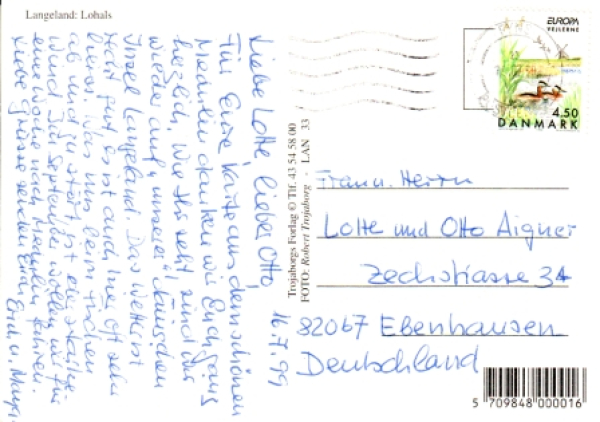 Langeland: Lohals
16.7.99
Liebe Lotte, lieber Otto,
Für Eure Karte aus dem schönen
danken wir Euch ganz
herzlich. Wie Ihr seht, sind wir
wieder auf unserer dänischen
Insel Langeland. Das Wetter ist
sehr gut, es ist auch
Was uns beim Fischen
ab und zu stört, ist der starke
Wind. Im September wollen wir für
eine Woche nach fahren.
Liebe Grüsse senden Euch Erich u.
Trojaborgs Forlag © Tlf. 43 54 58 00
FOTO: Robert Trojaborg - LAN 33
EUROPA
VEJLERNE
4.50
DANMARK
Frau u. Herrn
Lotte und Otto Aigner
Zechstrasse 34
82067 Ebenhausen
Deutschland
5 709848 000016